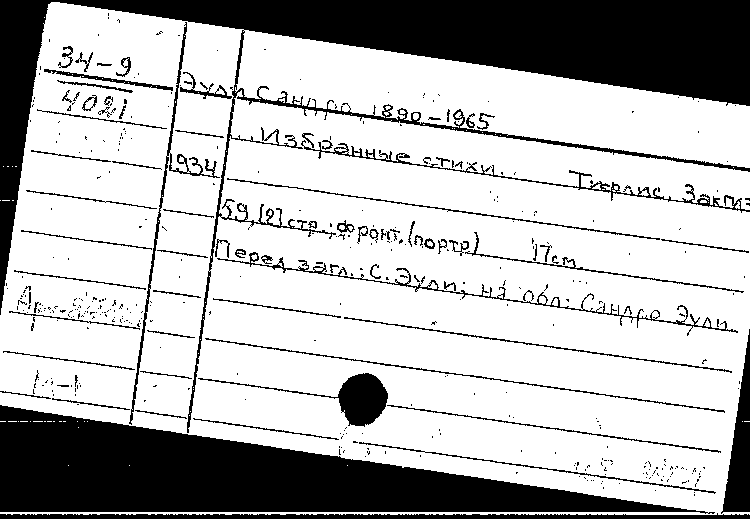 34-9
4021
Эули, Сандро, 1890-1965
...Избранные стихи... Тифлис, Закгиз
1934
59, [2] стр.; фронт. (портр) 17см.
Перед загл.: С. Эули; на обл: Сандро Эули.